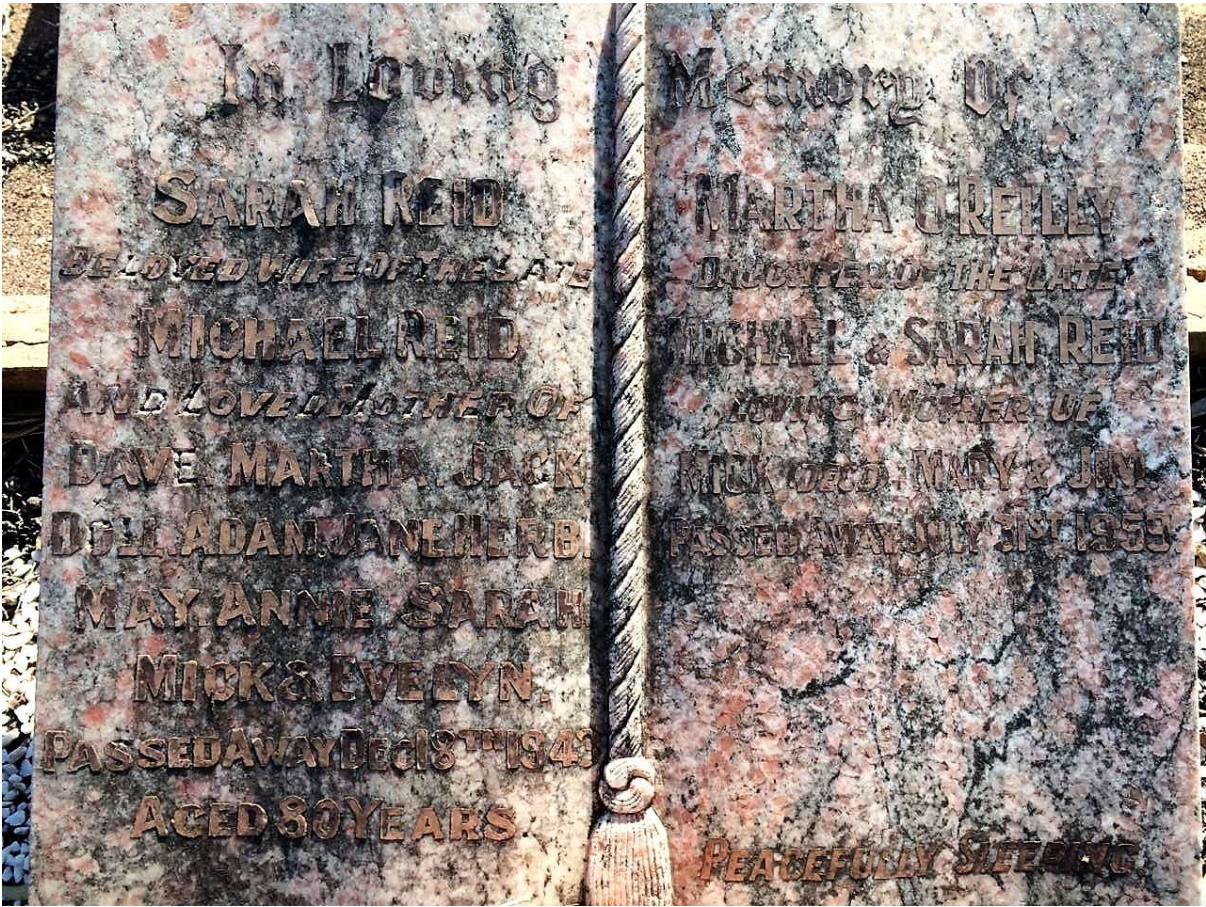 In Loving Memory Of
SARAH REID
BELOVED WIFE OF THE LATE
MICHAEL REID
AND LOVED MOTHER OF
DAVE. MARTHA. JACK
DOLL. ADAM. JANE. HERB.
MAY. ANNIE. SARAH
MICK & EVELYN.
PASSED AWAY DEC 18TH 1943
AGED 80 YEARS
MARTHA O'REILLY
DAUGHTER OF THE LATE
MICHAEL & SARAH REID
LOVING MOTHER OF
MICK MARY & JIM.
PASSED AWAY JULY 31ST
PEACEFULLY SLEEPING.